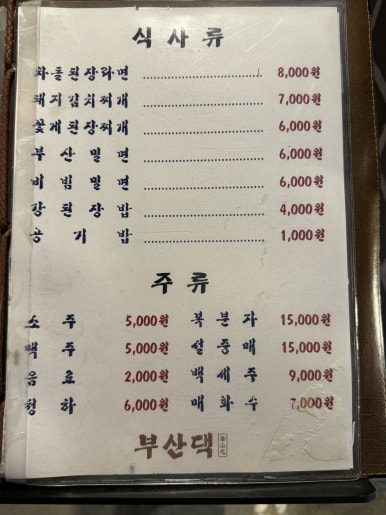 식사류
차돌된장라면 8,000원
돼지김치찌개 7,000원
꽃게된장찌개 6,000원
부산밀면 6,000원
비빔밀면 6,000원
강된장밥 4,000원
공기밥 1,000원
주류
소주 5,000원 복분자 15,000원
맥주 5,000원 설중매 15,000원
음료 2,000원 백세주 9,000원
청하 6,000원 매화수 7,000원
부산댁